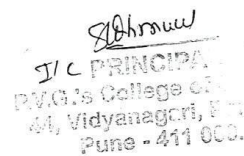 I/C PRINCIPA
P.V.G.'s College of
44, Vidyanagari,
Pune - 411 009.